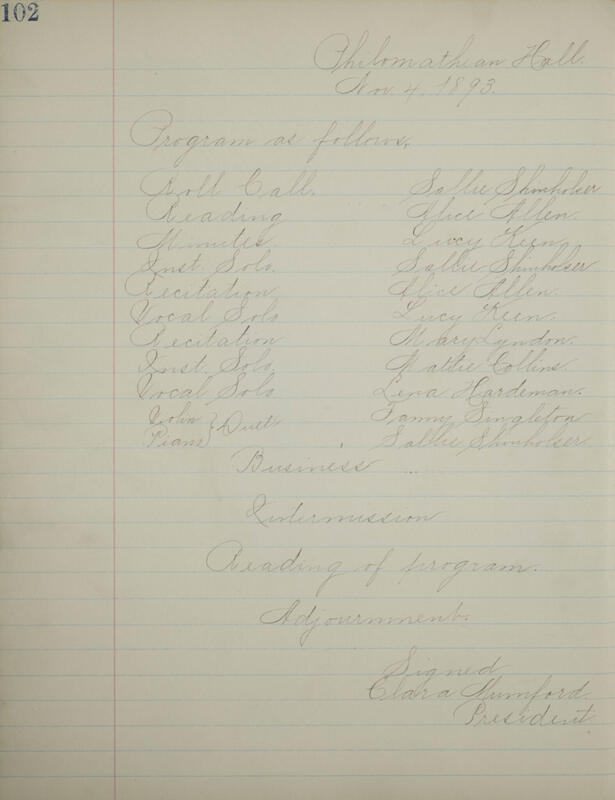 102
Philomathean Hall.
Nov. 4, 1893.
Program as follows.
Roll Call. Sallie Shinholser
Reading Alice Allen.
Minutes Lucy Keen.
Inst. Solo. Sallie Shinholser
Recitation Alice Allen.
Vocal Solo Lucy Keen.
Recitation Mary Lyndon.
Inst. Solo Mattie Collins.
Vocal Solo. Lena Hardeman.
Violin } Duet Fanny Singleton
Piano Sallie Shinholser
Business
Intermission
Reading of program.
Adjournment.
Signed
Clara Mumford.
President